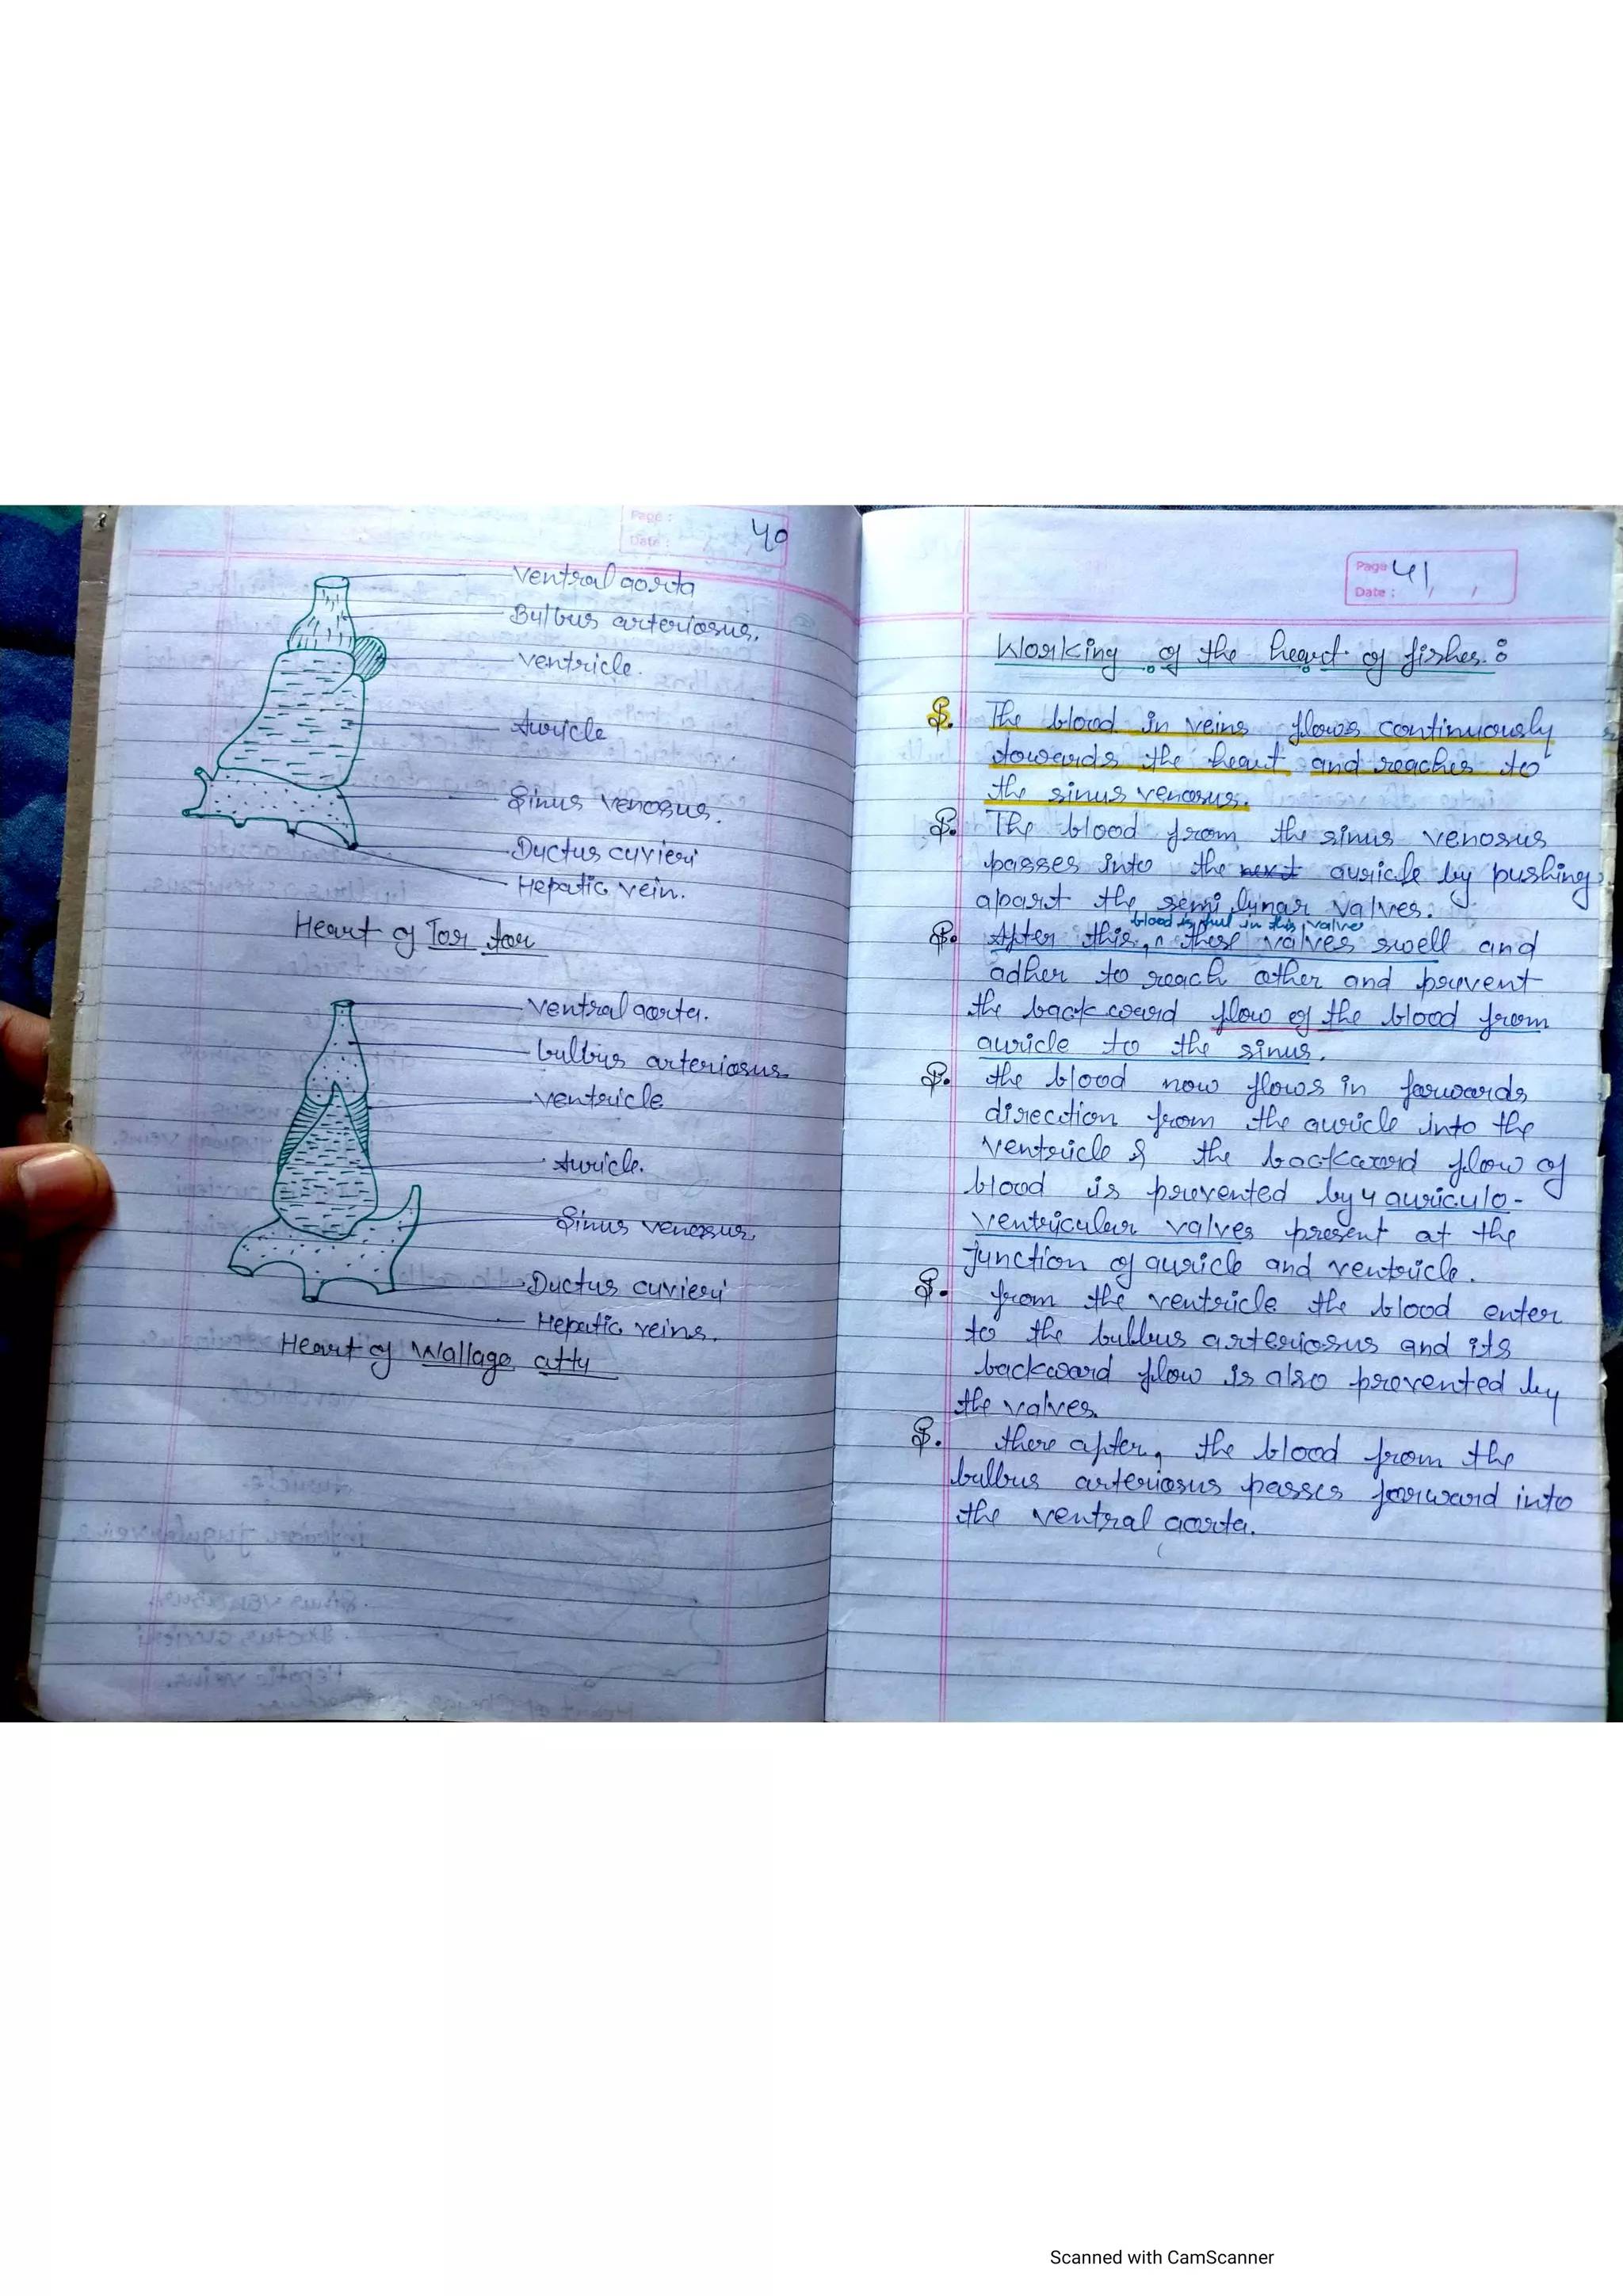 Page :
Date :
40
Ventral aorta
Bulbus arteriosus.
Ventricle.
Auricle
Sinus venosus.
Ductus cuvieri
Hepatic vein.
Heart of Tor tor
Ventral aorta.
bulbus arteriosus
ventricle
Auricle.
Sinus venosus.
Ductus cuvieri
Hepatic veins.
Heart of Wallago atty
Page 41
Date :
Working of the heart of fishes :
The blood in veins flows continuously
towards the heart and reaches to
the sinus venosus.
The blood from the sinus venosus
passes into the next auricle by pushing
apart the semi lunar valves.
blood is full in this valve
After this, these valves swell and
adher to reach other and prevent
the backward flow of the blood from
auricle to the sinus.
the blood now flows in forwards
direction from the auricle into the
ventricle & the backward flow of
blood is prevented by 4 auriculo-
ventricular valves present at the
junction of auricle and ventricle.
from the ventricle the blood enter
to the bulbus arteriosus and its
backward flow is also prevented by
the valves.
there after, the blood from the
bulbus arteriosus passes forward into
the ventral aorta.
Scanned with CamScanner